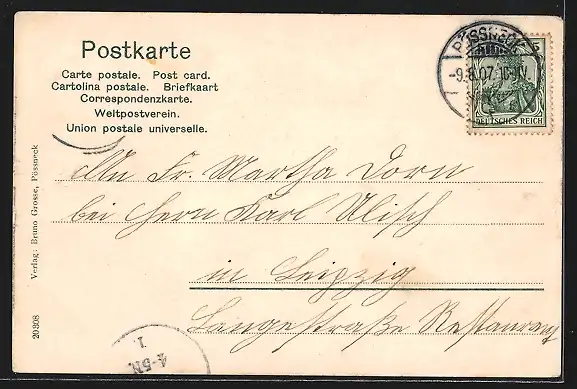 Postkarte
Carte postale. Post card.
Cartolina postale. Briefkaart
Correspondenzkarte.
Weltpostverein.
Union postale universelle.
PÖSSNECK
-9.8.07.
5
DEUTSCHES REICH
An Fr. Martha Dorn
bei Herrn Karl Ulisch
in Leipzig
Langestraße Restaurang
Verlag: Bruno Grosse, Pössneck
20308
4-5N.
1.